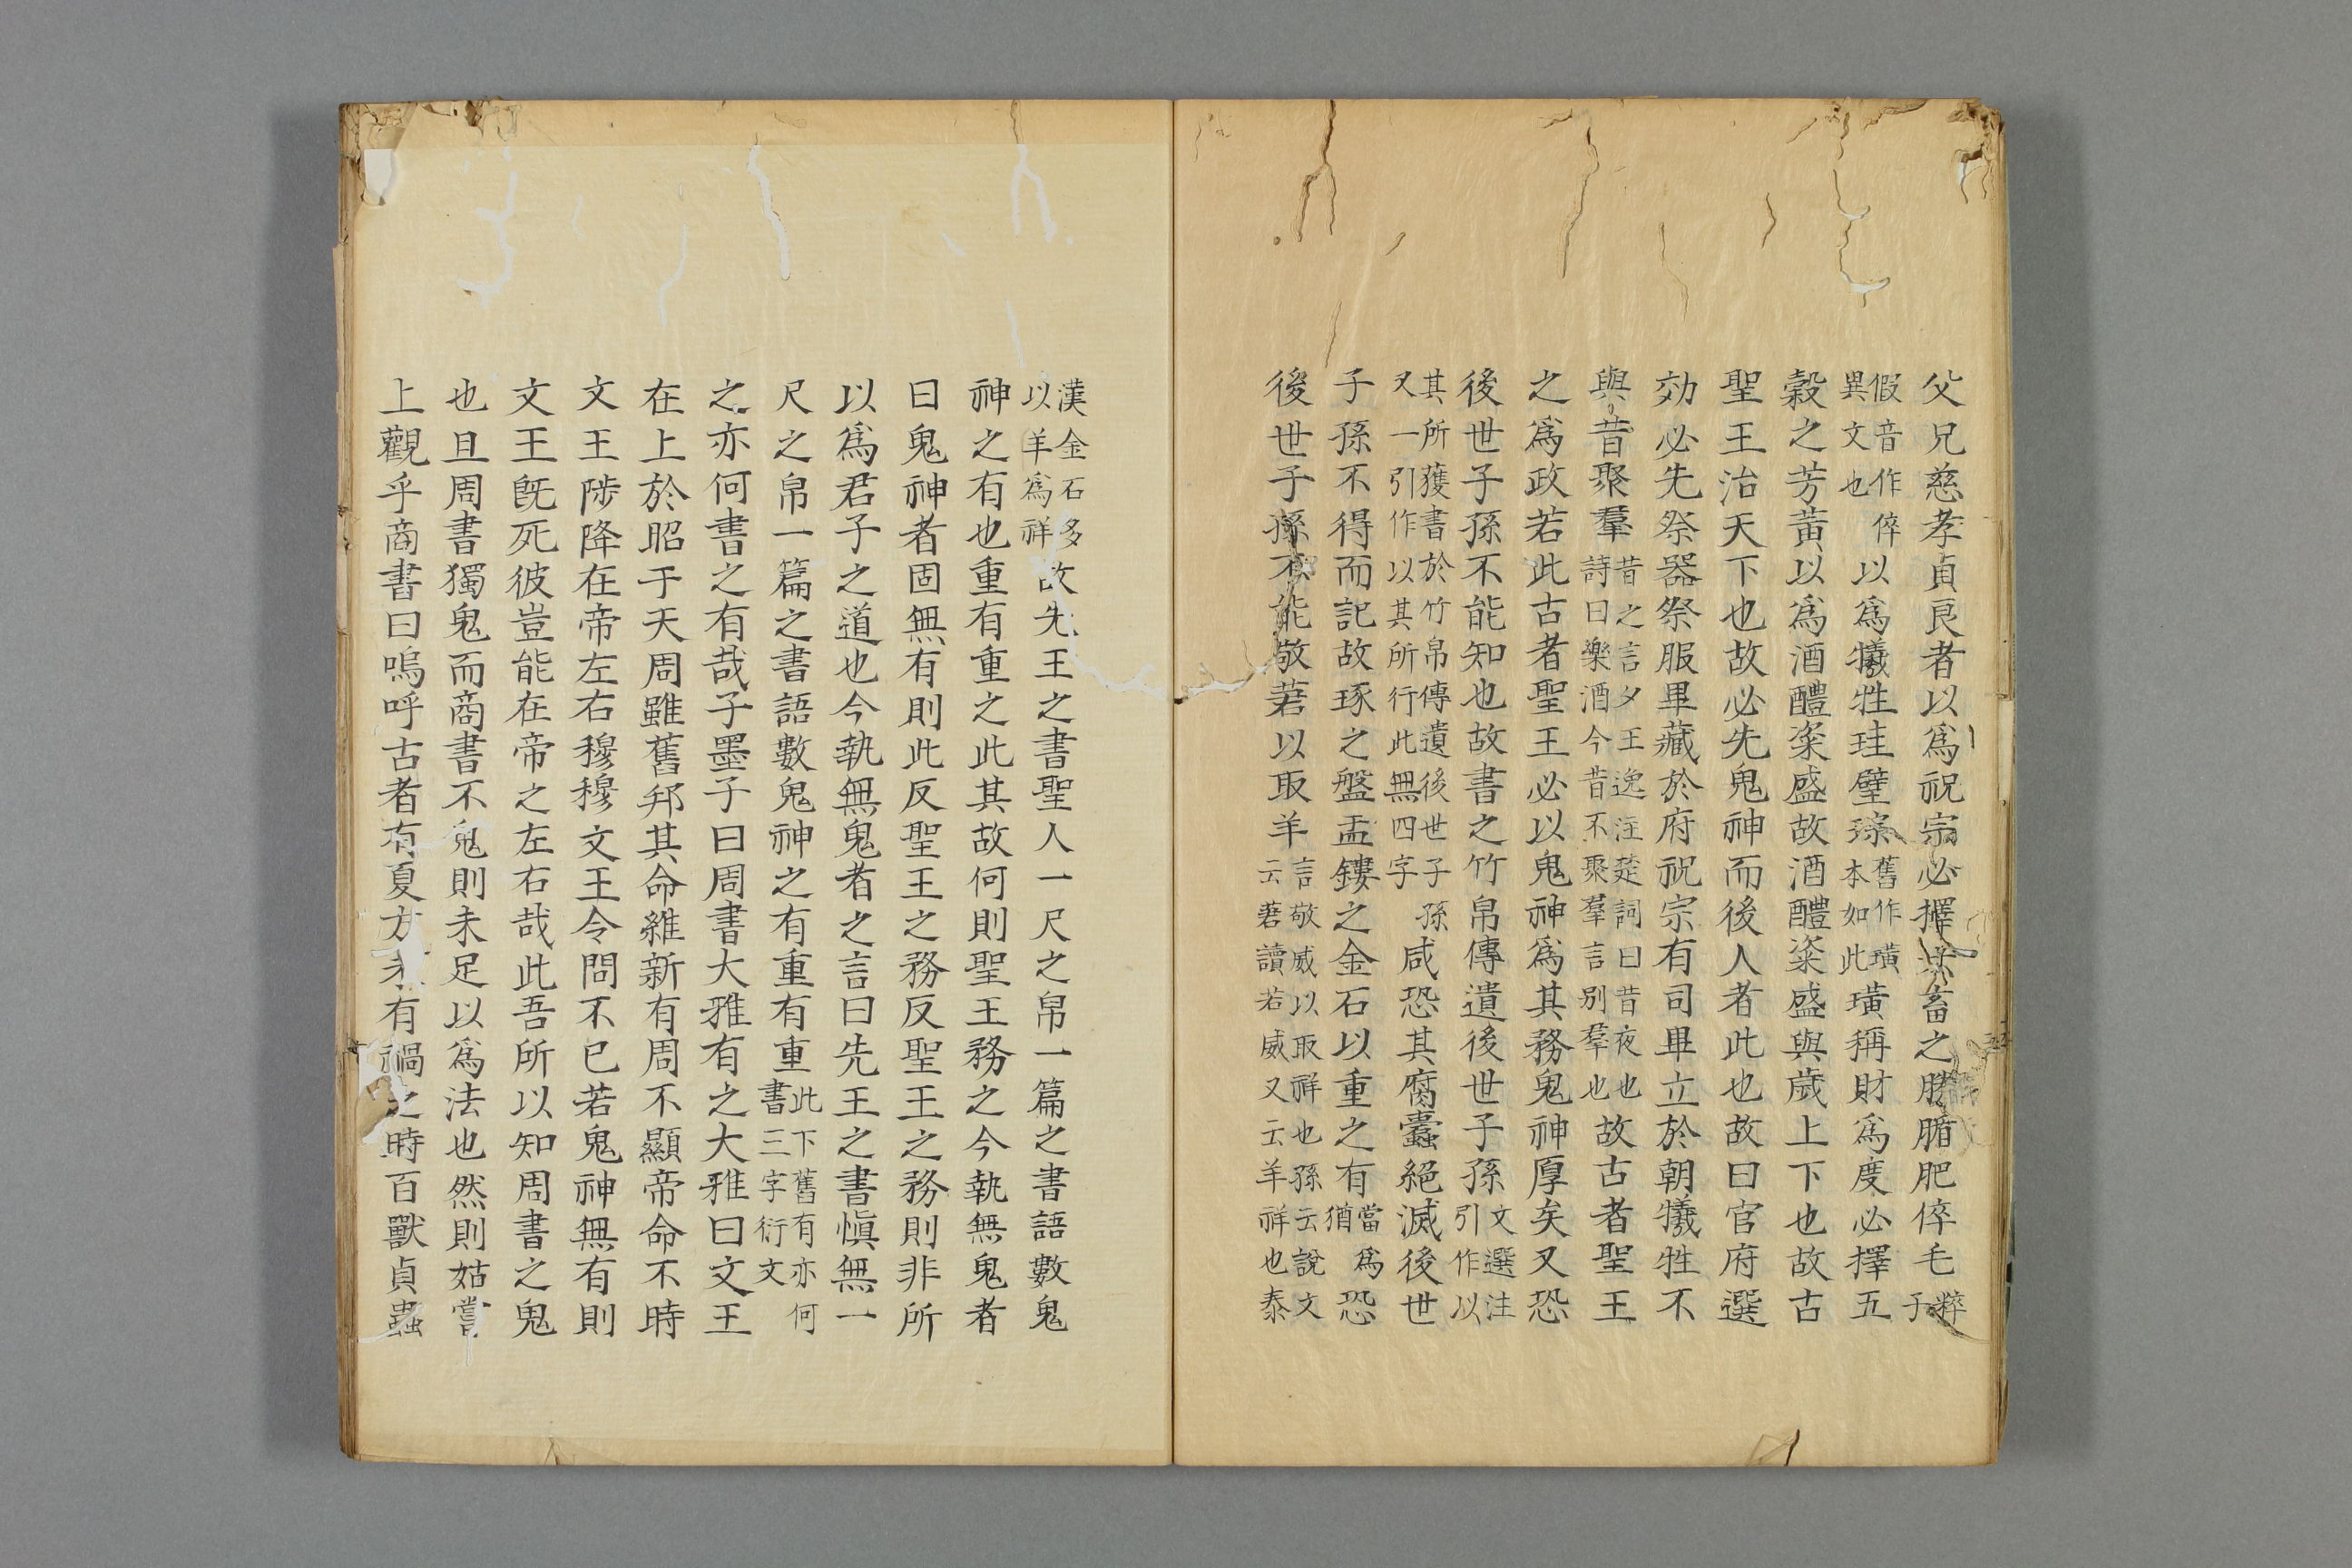 父兄慈孝貞良者以爲祝宗必擇六畜之勝腯肥倅毛粹字
假音作倅異文也以爲犧牲珪璧琮舊作璜本如此璜稱財爲度必擇五
穀之芳黃以爲酒醴粢盛故酒醴粢盛與歲上下也故古
聖王治天下也故必先鬼神而後人者此也故曰官府選
効必先祭器祭服畢藏於府祝宗有司畢立於朝犧牲不
與昔聚羣昔之言夕王逸注楚詞曰昔夜也詩曰樂酒今昔不聚羣言别羣也故古者聖王
之爲政若此古者聖王必以鬼神爲其務鬼神厚矣又恐
後世子孫不能知也故書之竹帛傳遺後世子孫文選注引作以
其所獲書於竹帛傳遺後世子孫又一引作以其所行此無四字咸恐其腐蠹絕滅後世
子孫不得而記故琢之盤盂鏤之金石以重之有當爲猶恐
後世子孫不能敬莙以取羊言敬威以取祥也孫云說文云莙讀若威又云羊祥也秦
漢金石多以羊爲祥故先王之書聖人一尺之帛一篇之書語數鬼
神之有也重有重之此其故何則聖王務之今執無鬼者
曰鬼神者固無有則此反聖王之務反聖王之務則非所
以爲君子之道也今執無鬼者之言曰先王之書愼無一
尺之帛一篇之書語數鬼神之有重有重此下舊有亦何書三字衍文
之亦何書之有哉子墨子曰周書大雅有之大雅曰文王
在上於昭于天周雖舊邦其命維新有周不顯帝命不時
文王陟降在帝左右穆穆文王令問不已若鬼神無有則
文王旣死彼豈能在帝之左右哉此吾所以知周書之鬼
也且周書獨鬼而商書不鬼則未足以爲法也然則姑嘗
上觀乎商書曰嗚呼古者有夏方未有禍之時百獸貞蟲